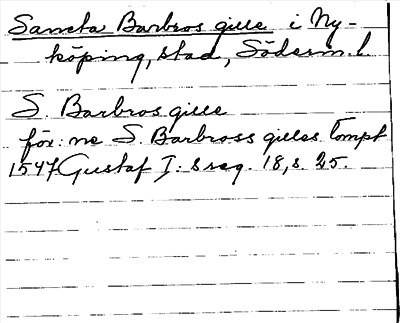 Sancta Barbros gille i Ny-
köping, stad, Söderm. l.
S. Barbros gille
för: ne S. Barbross gilles tompt
1547 Gustaf I: s reg. 18, s. 25.